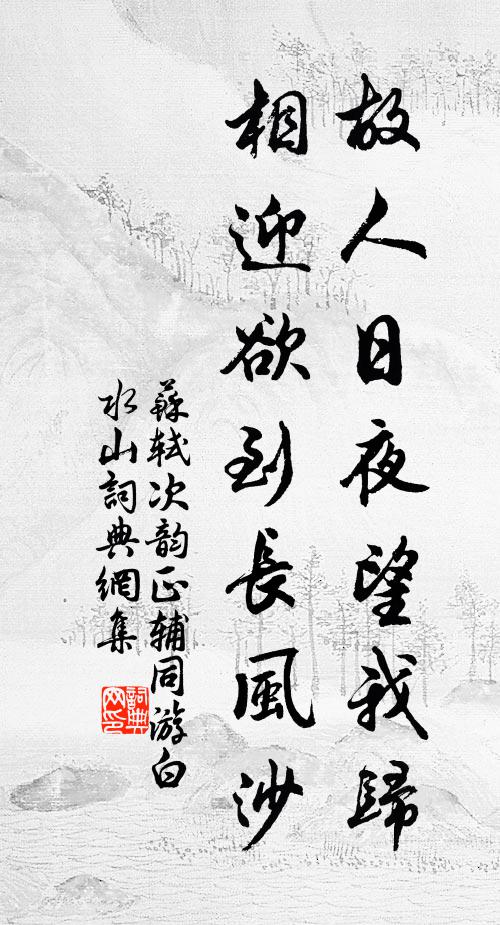 故人日夜望我歸
相迎欲到長風沙
蘇軾次韵正辅同游白
水山詞典網集
詞典网印